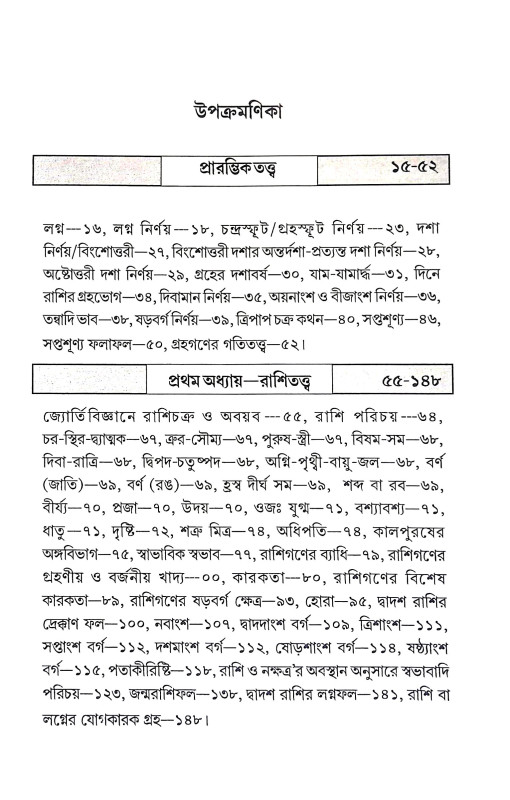 উপক্রমণিকা
প্রারম্ভিক তত্ত্ব ১৫-৫২
লগ্ন—১৬, লগ্ন নির্ণয়—১৮, চন্দ্রস্ফূট/গ্রহস্ফূট নির্ণয়—২৩, দশা
নির্ণয়/বিংশোত্তরী—২৭, বিংশোত্তরী দশার অন্তর্দশা-প্রত্যন্ত দশা নির্ণয়—২৮,
অষ্টোত্তরী দশা নির্ণয়—২৯, গ্রহের দশাবর্ষ—৩০, যাম-যামার্দ্ধ—৩১, দিনে
রাশির গ্রহভোগ—৩৪, দিবামান নির্ণয়—৩৫, অয়নাংশ ও বীজাংশ নির্ণয়—৩৬,
তন্বাদি ভাব—৩৮, ষড়বর্গ নির্ণয়—৩৯, ত্রিপাপ চক্র কথন—৪০, সপ্তশূণ্য—৪৬,
সপ্তশূণ্য ফলাফল—৫০, গ্রহগণের গতিতত্ত্ব—৫২।
প্রথম অধ্যায়—রাশিতত্ত্ব ৫৫-১৪৮
জ্যোতির্বিজ্ঞানে রাশিচক্র ও অবয়ব---৫৫, রাশি পরিচয়---৬৪,
চর-স্থির-দ্ব্যাত্মক—৬৭, ক্রর-সৌম্য—৬৭, পুরুষ-স্ত্রী—৬৭, বিষম-সম—৬৮,
দিবা-রাত্রি—৬৮, দ্বিপদ-চতুষ্পদ—৬৮, অগ্নি-পৃথ্বী-বায়ু-জল—৬৮, বর্ণ
(জাতি)—৬৯, বর্ণ (রঙ)—৬৯, হ্রস্ব দীর্ঘ সম—৬৯, শব্দ বা রব—৬৯,
বীর্য্য—৭০, প্রজা—৭০, উদয়—৭০, ওজঃ যুগ্ম—৭১, বশ্যাবশ্য—৭১,
ধাতু—৭১, দৃষ্টি—৭২, শত্রু মিত্র—৭৪, অধিপতি—৭৪, কালপুরষের
অঙ্গবিভাগ—৭৫, স্বাভাবিক স্বভাব—৭৭, রাশিগণের ব্যাধি—৭৯, রাশিগণের
গ্রহণীয় ও বর্জনীয় খাদ্য---০০, কারকতা—৮০, রাশিগণের বিশেষ
কারকতা—৮৯, রাশিগণের ষড়বর্গ ক্ষেত্র—৯৩, হোরা—৯৫, দ্বাদশ রাশির
দ্রেক্কাণ ফল—১০০, নবাংশ—১০৭, দ্বাদদাংশ বর্গ—১০৯, ত্রিশাংশ—১১১,
সপ্তাংশ বর্গ—১১২, দশমাংশ বর্গ—১১২, ষোড়শাংশ বর্গ—১১৪, ষষ্ঠ্যাংশ
বর্গ—১১৫, পতাকীরিষ্টি—১১৮, রাশি ও নক্ষত্র'র অবস্থান অনুসারে স্বভাবাদি
পরিচয়—১২৩, জন্মরাশিফল—১৩৮, দ্বাদশ রাশির লগ্নফল—১৪১, রাশি বা
লগ্নের যোগকারক গ্রহ—১৪৮।